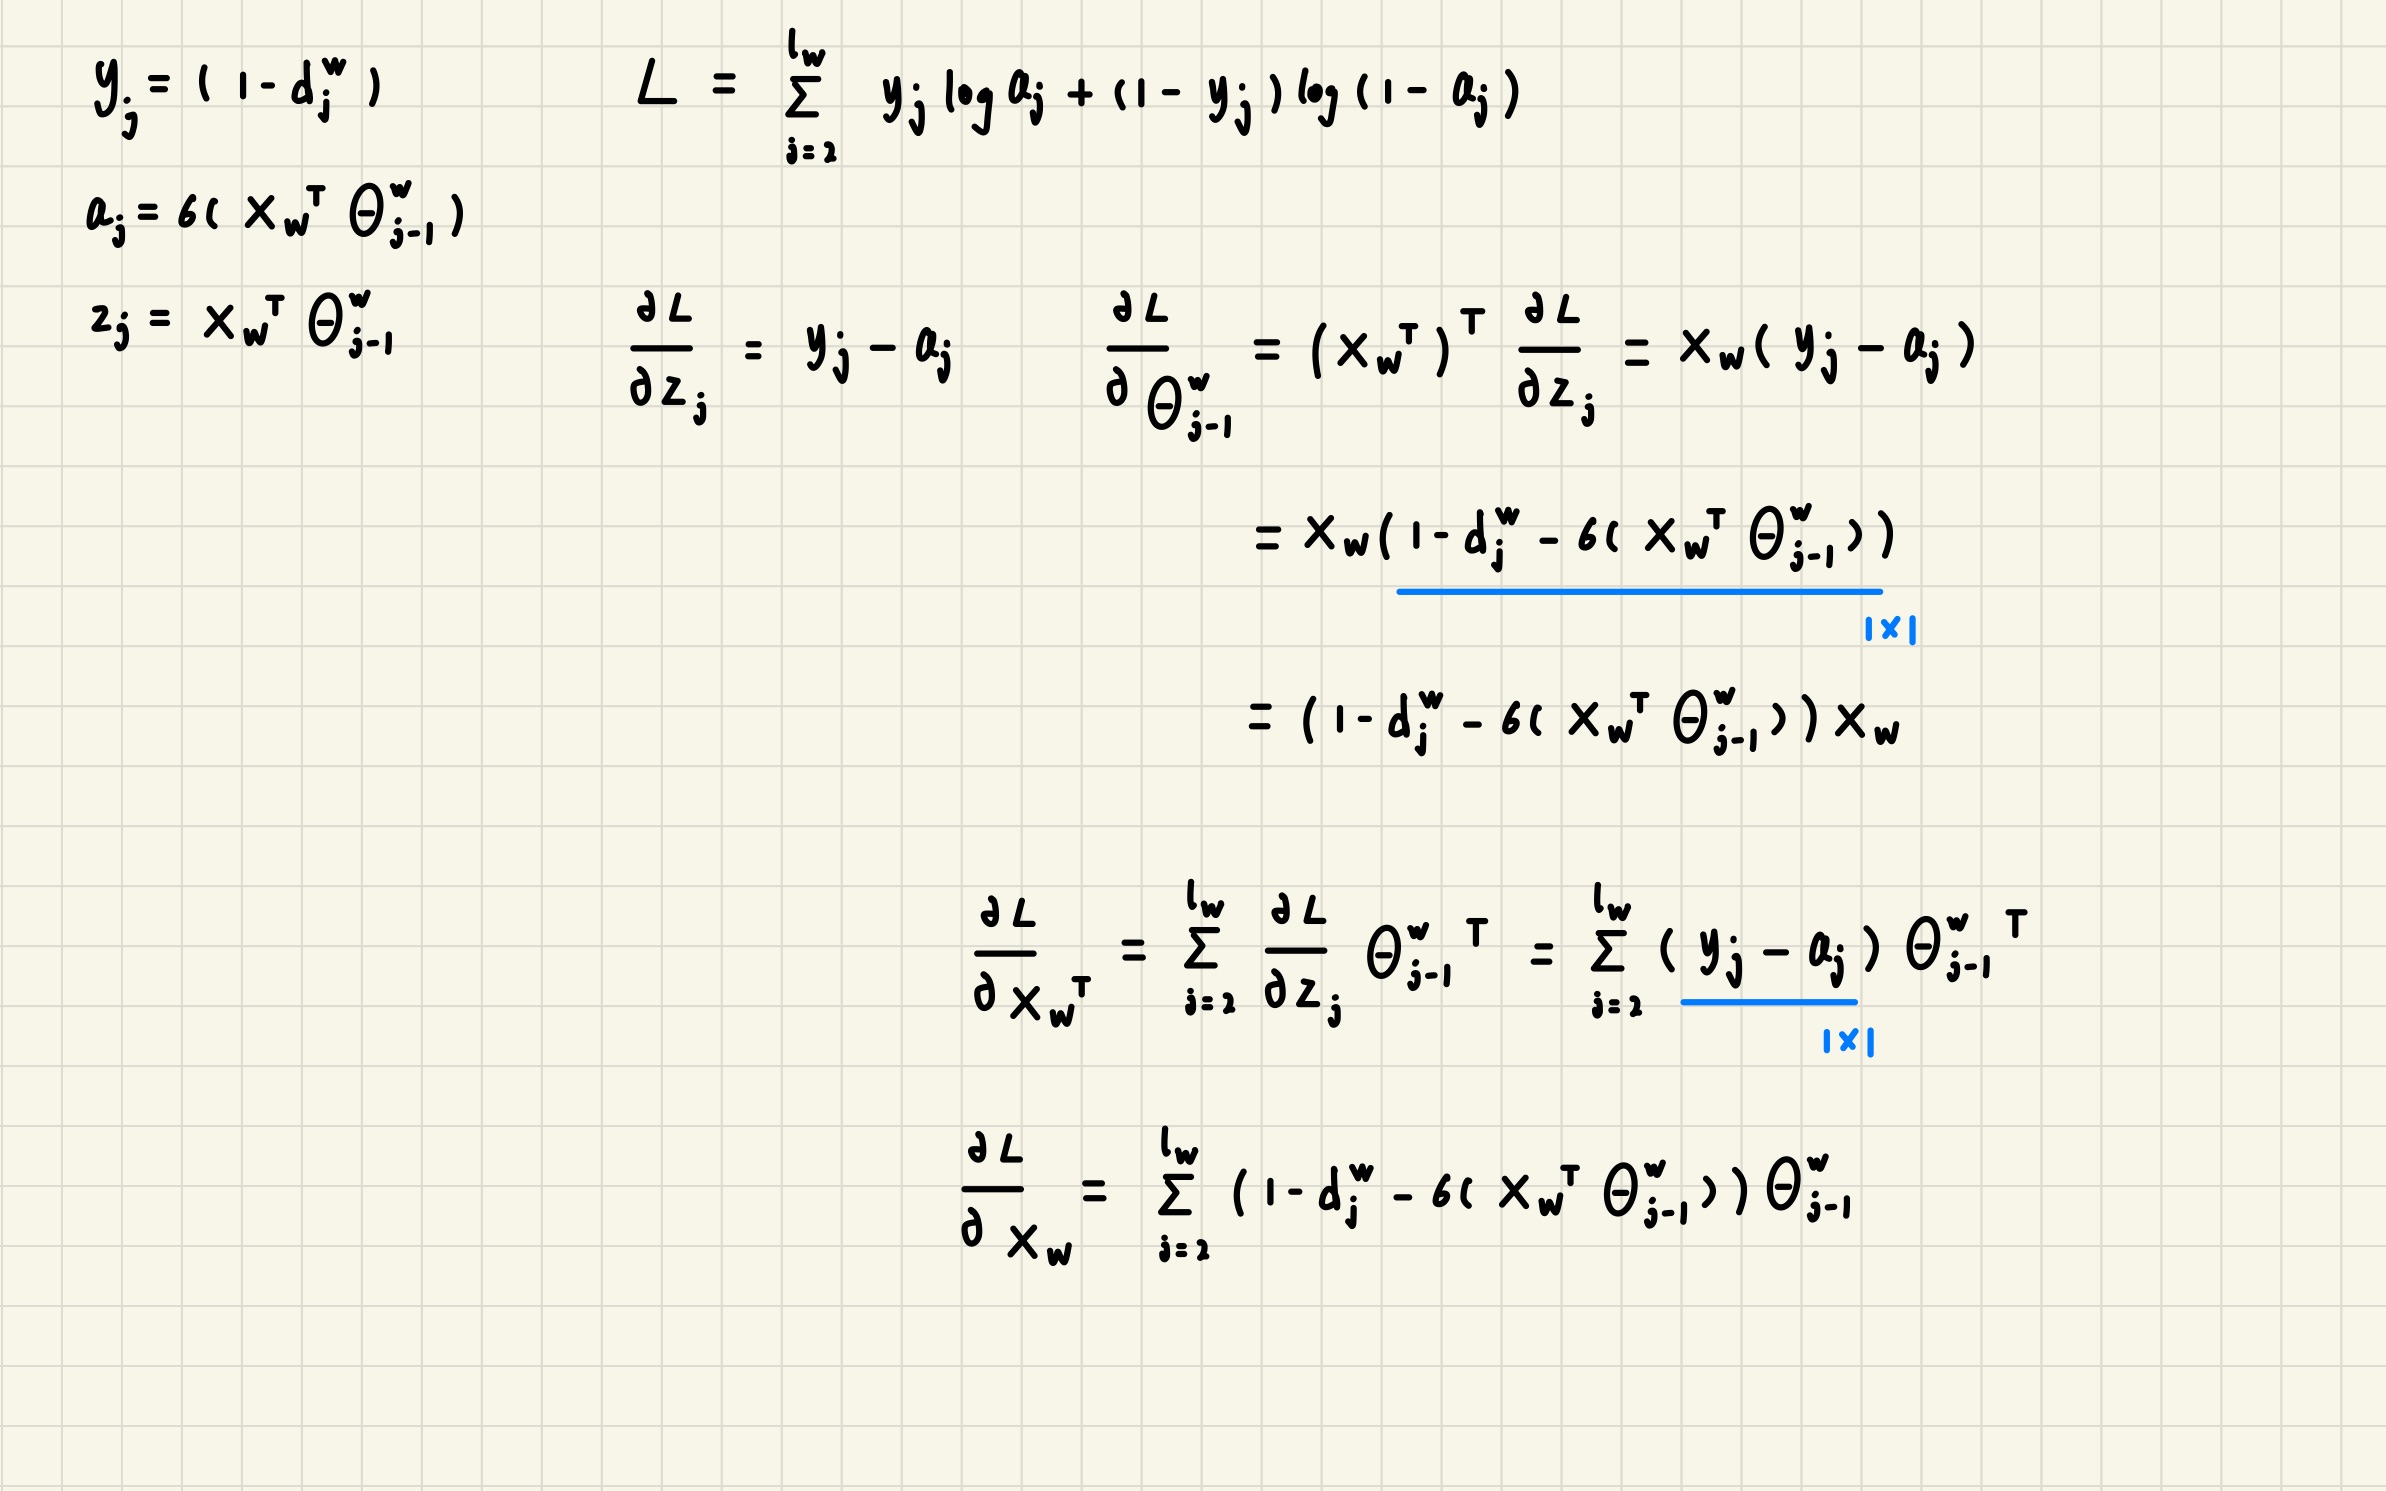 y_j = (1 - d_j^w)
L = \sum_{j=2}^{l_w} y_j log a_j + (1 - y_j) log (1 - a_j)
a_j = σ(x_w^T θ_{j-1}^w)
z_j = x_w^T θ_{j-1}^w
∂L/∂z_j = y_j - a_j
∂L/∂θ_{j-1}^w = (x_w^T)^T ∂L/∂z_j = x_w(y_j - a_j)
= x_w(1 - d_j^w - σ(x_w^T θ_{j-1}^w))
1×1
= (1 - d_j^w - σ(x_w^T θ_{j-1}^w)) x_w
∂L/∂x_w^T = \sum_{j=2}^{l_w} ∂L/∂z_j θ_{j-1}^w^T = \sum_{j=2}^{l_w} (y_j - a_j) θ_{j-1}^w^T
1×1
∂L/∂x_w = \sum_{j=2}^{l_w} (1 - d_j^w - σ(x_w^T θ_{j-1}^w)) θ_{j-1}^w